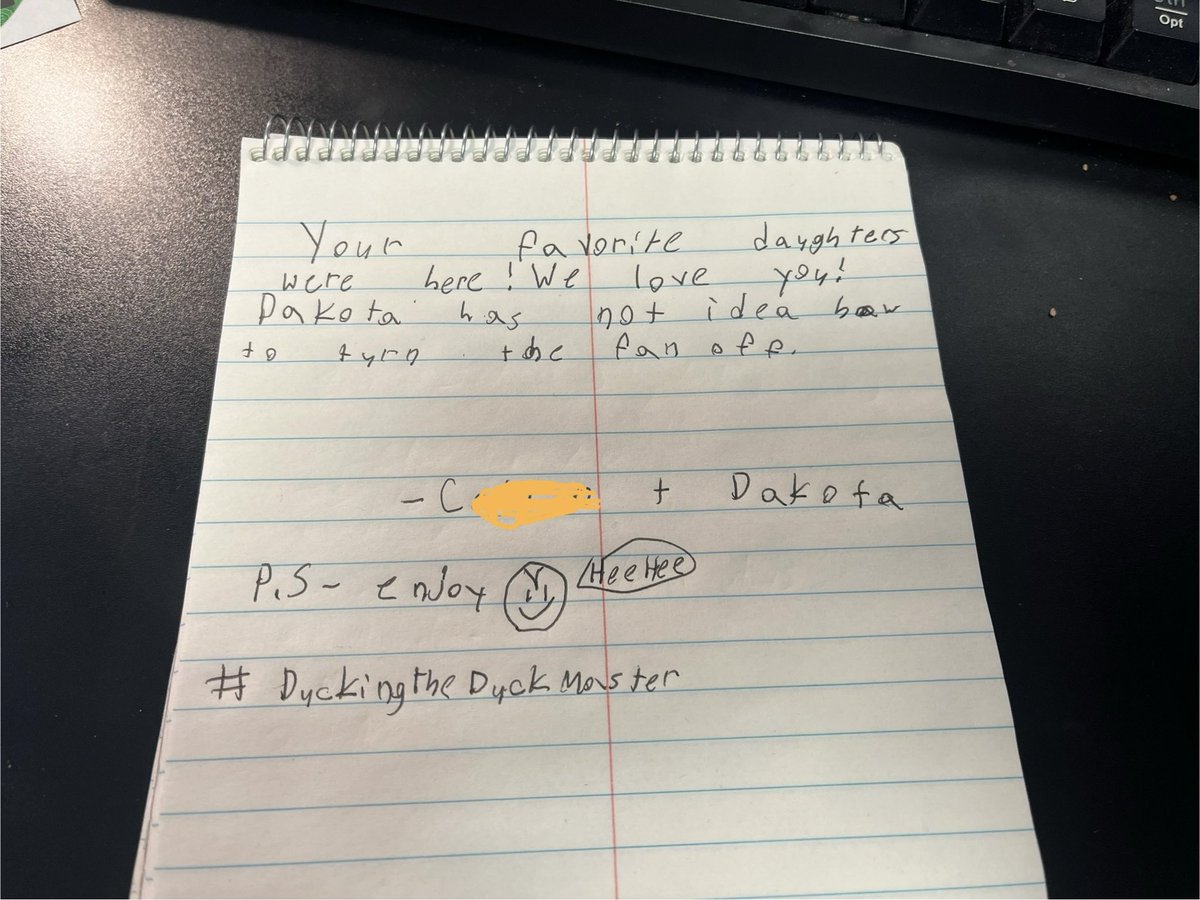 Your favorite daughters
were here! We love you!
Dakota has not idea how
to turn the fan off.
- C + Dakota
P.S- enjoy HeeHee
# DuckingtheDuckMaster
Opt